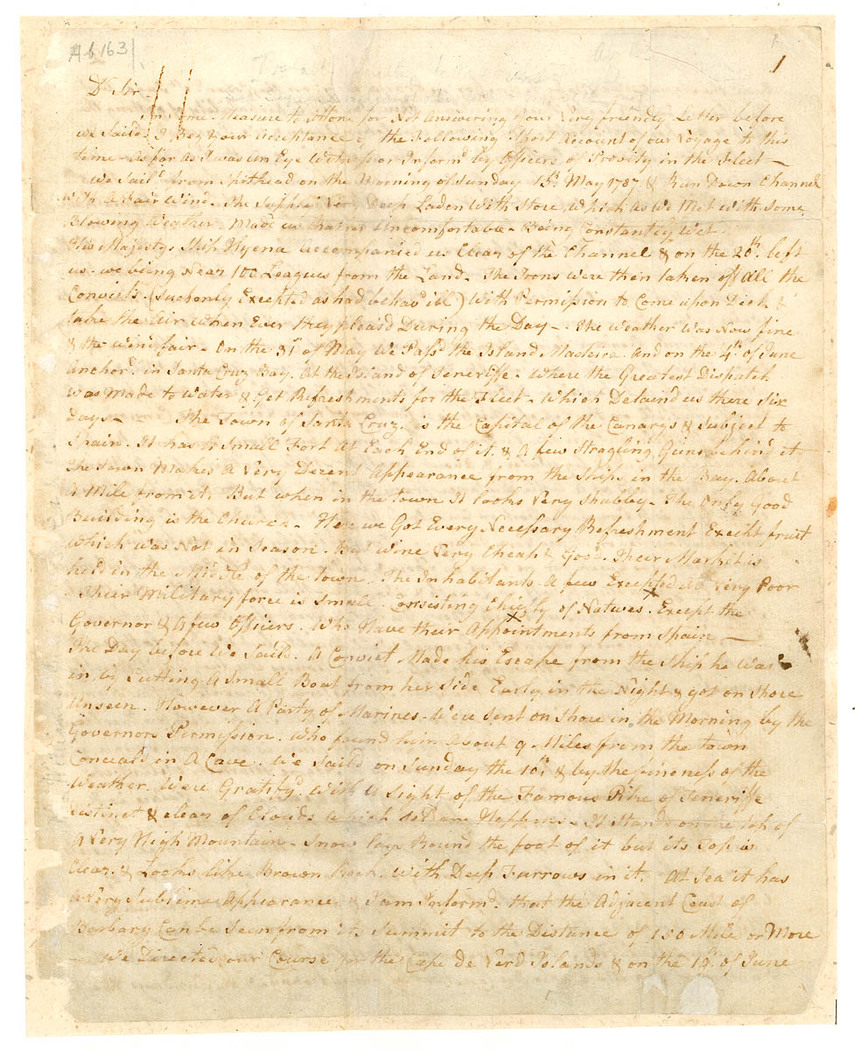 Ab 163
1
Dr Sir
In some Measure to Attone for Not Answering Your Very friendly Letter before
we Sailed I Beg your Acceptance of the Following Short Account of our Voyage to this
time - As far as I was An Eye Witness or Inform'd by Officers of Veracity in the Fleet -
We Sail'd from Spithead on the Morning of Sunday 13th May 1787 & Run Down Channel
With A Fair Wind. The Supply Very Deep Laden With Store Which As We Met with Some
Blowing Weather Made us Rather Uncomfortable - Being Constantly Wet -
His Majestys Ship Hyena Accompanied us Clear of the Channel & on the 20th left
us. we being Near 100 Leagues from the Land - The Irons Were then taken off All the
Convicts. (Such only Excepted as had behav'd ill) With Permission to Come upon Deck &
take the Air when Ever they pleas'd During the Day - The Weather Was Now fine
& the wind fair - On the 31st of May We Pass'd the Island Madeira. And on the 4th of June
Anchor'd in Santa Cruz Bay. At the Island of Teneriffe - Where the Greatest Dispatch
Was Made to Water & Get Refreshments for the Fleet - Which Detain'd us there Six
Days - The Town of Santa Cruz. is the Capital of the Canarys & Subject to
Spain. It has A Small Fort At Each End of it. & A few Stragling Guns behind it
The Town Makes A Very Decent Appearance from the Ships in the Bay. About
A Mile from it. But when in the town It looks Very Shabby - The Only Good
Building is the Church - Here we Got Every Necessary Refreshment Except fruit
which was Not in Season. But Wine Very Cheap & Good. Their Market is
held in the Middle of the town. The Inhabitants A few Excepted Are Very Poor
Their Military force is Small. Consisting Chiefly of Natives. Except the
Governor & A few Officers. Who Have their Appointments from Spain -
The Day before We Sail'd. A Convict Made his Escape from the Ship he Was
in by Cutting A Small Boat from her Side Early in the Night & got on Shore
Unseen. However A Party of Marines. Were Sent on Shore in the Morning by the
Governors Permission. Who found him About 9 Miles from the town
Conceal'd in A Cave. We Sail'd on Sunday the 10th & by the fineness of the
Weather. Were Gratify'd With A Sight of the Famous Pike of Teneriffe
Distinct & clear of Clouds which Rare Happens - It Stands on the top of
A Very High Mountain - Snow lays Round the foot of it but its Top is
Clear. & Looks like Brown Rock. With Deep Furrows in it. At Sea it has
A Very Sublime Appearance & I am Inform'd. that the Adjacent Coast of
Barbary Can be Seen from its Summit to the Distance of 150 Miles or More
- We Directed our Course for the Cape de Verd Islands & on the 19th of June